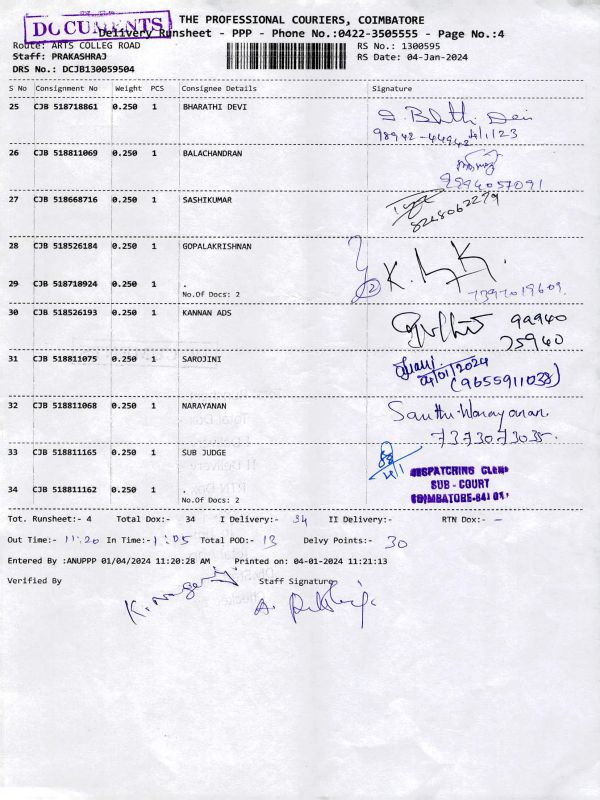 DOCUMENTS
THE PROFESSIONAL COURIERS, COIMBATORE
Delivery Runsheet - PPP - Phone No.:0422-3505555 - Page No.:4
Route: ARTS COLLEG ROAD RS No.: 1300595
Staff: PRAKASHRAJ RS Date: 04-Jan-2024
DRS No.: DCJB130059504
S No Consignment No Weight PCS Consignee Details Signature
25 CJB 518718861 0.250 1 BHARATHI DEVI
98942-44942 4/1/23
26 CJB 518811069 0.250 1 BALACHANDRAN
9594057091
27 CJB 518668716 0.250 1 SASHIKUMAR
8248062279
28 CJB 518526184 0.250 1 GOPALAKRISHNAN
29 CJB 518718924 0.250 1 .
No.Of Docs: 2
7397019609.
30 CJB 518526193 0.250 1 KANNAN ADS
99940
75940
31 CJB 518811075 0.250 1 SAROJINI
04/01/2024
(9655911038)
32 CJB 518811068 0.250 1 NARAYANAN
Santhi Narayanan
7373073035.
33 CJB 518811165 0.250 1 SUB JUDGE
4/1
DESPATCHING CLERK
SUB - COURT
COIMBATORE-641 01
34 CJB 518811162 0.250 1 .
No.Of Docs: 2
Tot. Runsheet:- 4 Total Dox:- 34 I Delivery:- 34 II Delivery:- RTN Dox:- -
Out Time:- 11.20 In Time:- 1:05 Total POD:- 13 Delvy Points:- 30
Entered By :ANUPPP 01/04/2024 11:20:28 AM Printed on: 04-01-2024 11:21:13
Verified By Staff Signature